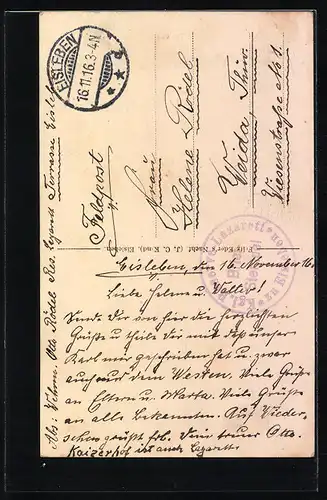 EISLEBEN
16.11.16.3-4N
Feldpost
Frau
Helene Rödel
Weida Thür.
Abs. Otto Rödel Res. Terrasse Eisleben
Eisleben, den 16. November 16.
Liebe Helene u. Walter!
Sende Dir von hier die herzlichsten
Grüße u. theile Dir mit daß unser
Karl mir geschrieben hat u. zwar
auch aus dem Westen. Viele Grüße
an Eltern u. Martha. Viele Grüße
an alle Bekannten. Auf Wieder
sehen grüßt frdl. Dein treuer Otto.
Kaiserhof ist auch Lazarett